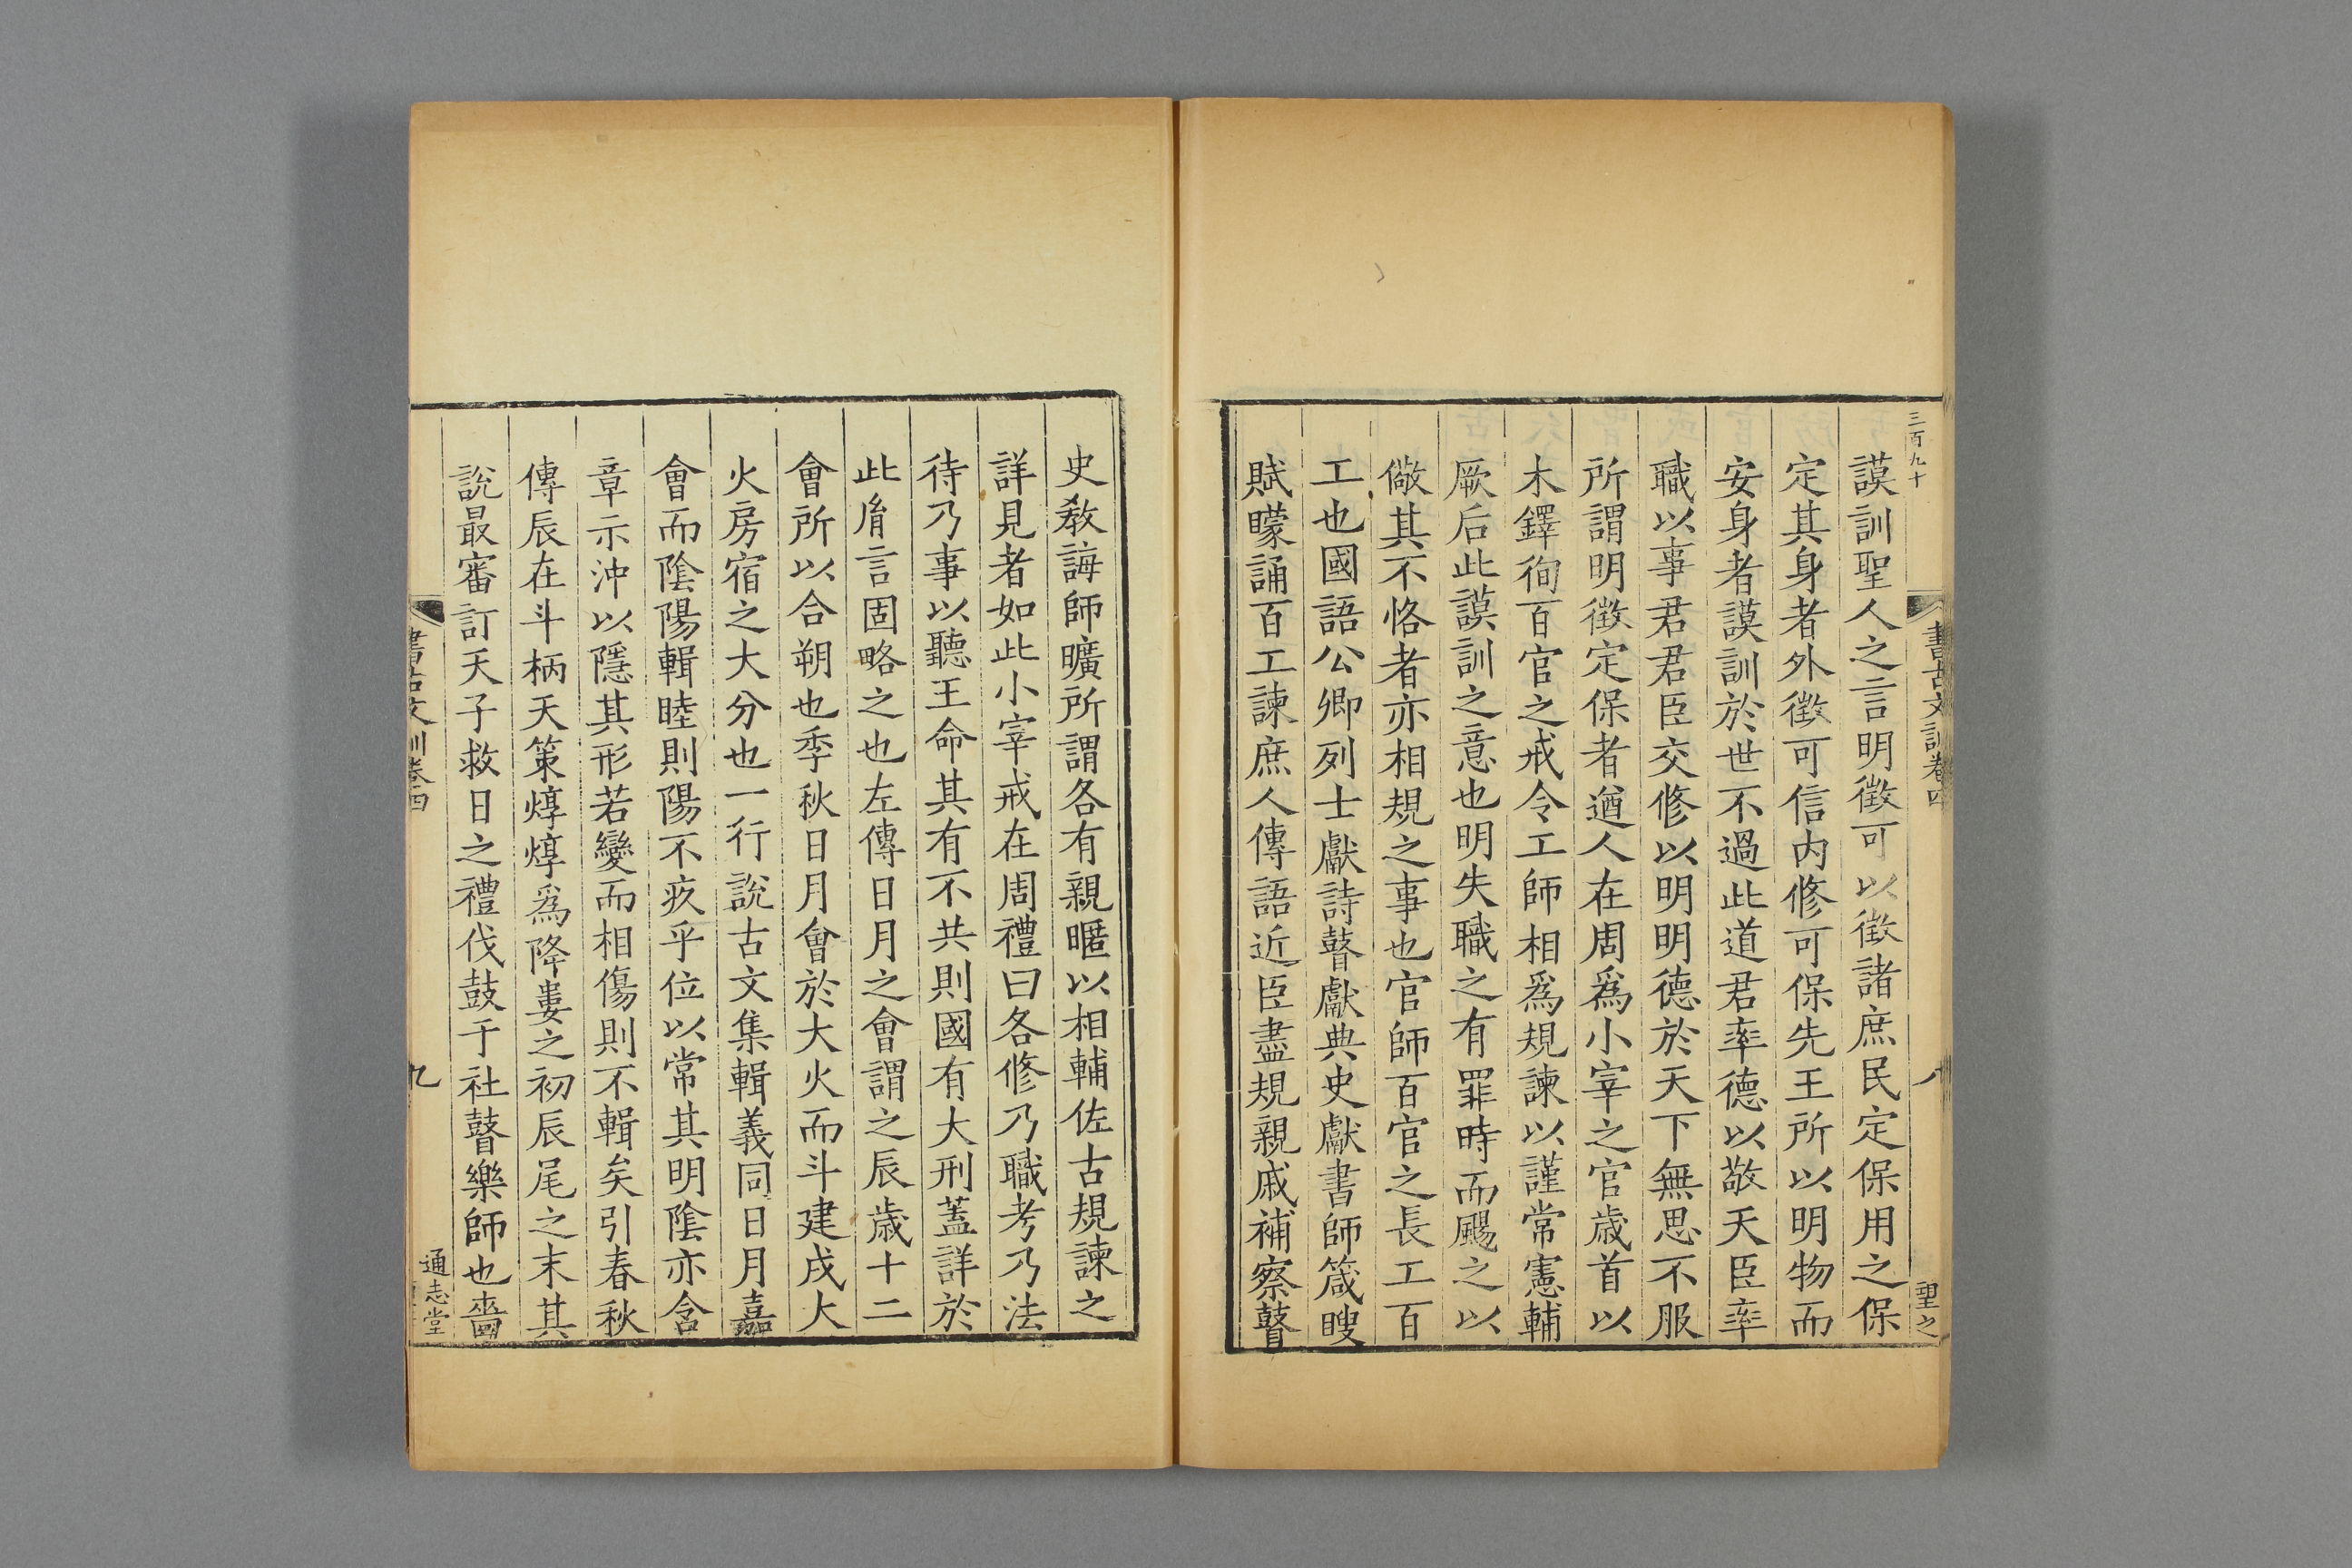 三百九十
書古文訓卷四
八
聖之
謨訓聖人之言明徴可以徴諸庶民定保用之保
定其身者外徴可信内修可保先王所以明物而
安身者謨訓於世不過此道君率德以敬天臣率
職以事君君臣交修以明明德於天下無思不服
所謂明徴定保者遒人在周爲小宰之官歳首以
木鐸徇百官之戒令工師相爲規諫以謹常憲輔
厥后此謨訓之意也明失職之有罪時而颺之以
儆其不恪者亦相規之事也官師百官之長工百
工也國語公卿列士獻詩瞽獻典史獻書師箴瞍
賦矇誦百工諫庶人傳語近臣盡規親戚補察瞽
史敎誨師曠所謂各有親暱以相輔佐古規諫之
詳見者如此小宰戒在周禮曰各修乃職考乃法
待乃事以聽王命其有不共則國有大刑蓋詳於
此胤言固略之也左傳日月之會謂之辰歳十二
會所以合朔也季秋日月會於大火而斗建戌大
火房宿之大分也一行說古文集輯義同日月嘉
會而陰陽輯睦則陽不疚乎位以常其明陰亦含
章示沖以隱其形若變而相傷則不輯矣引春秋
傳辰在斗柄天策焞焞爲降婁之初辰尾之末其
說最審訂天子救日之禮伐鼓于社瞽樂師也嗇
書古文訓卷四
九
通志堂